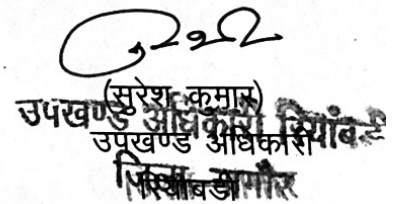 (सुरेश कुमार)
उपखण्ड अधिकारी रियांबड़ी
उपखण्ड अधिकारी
जिला नागौर
रियांबडी